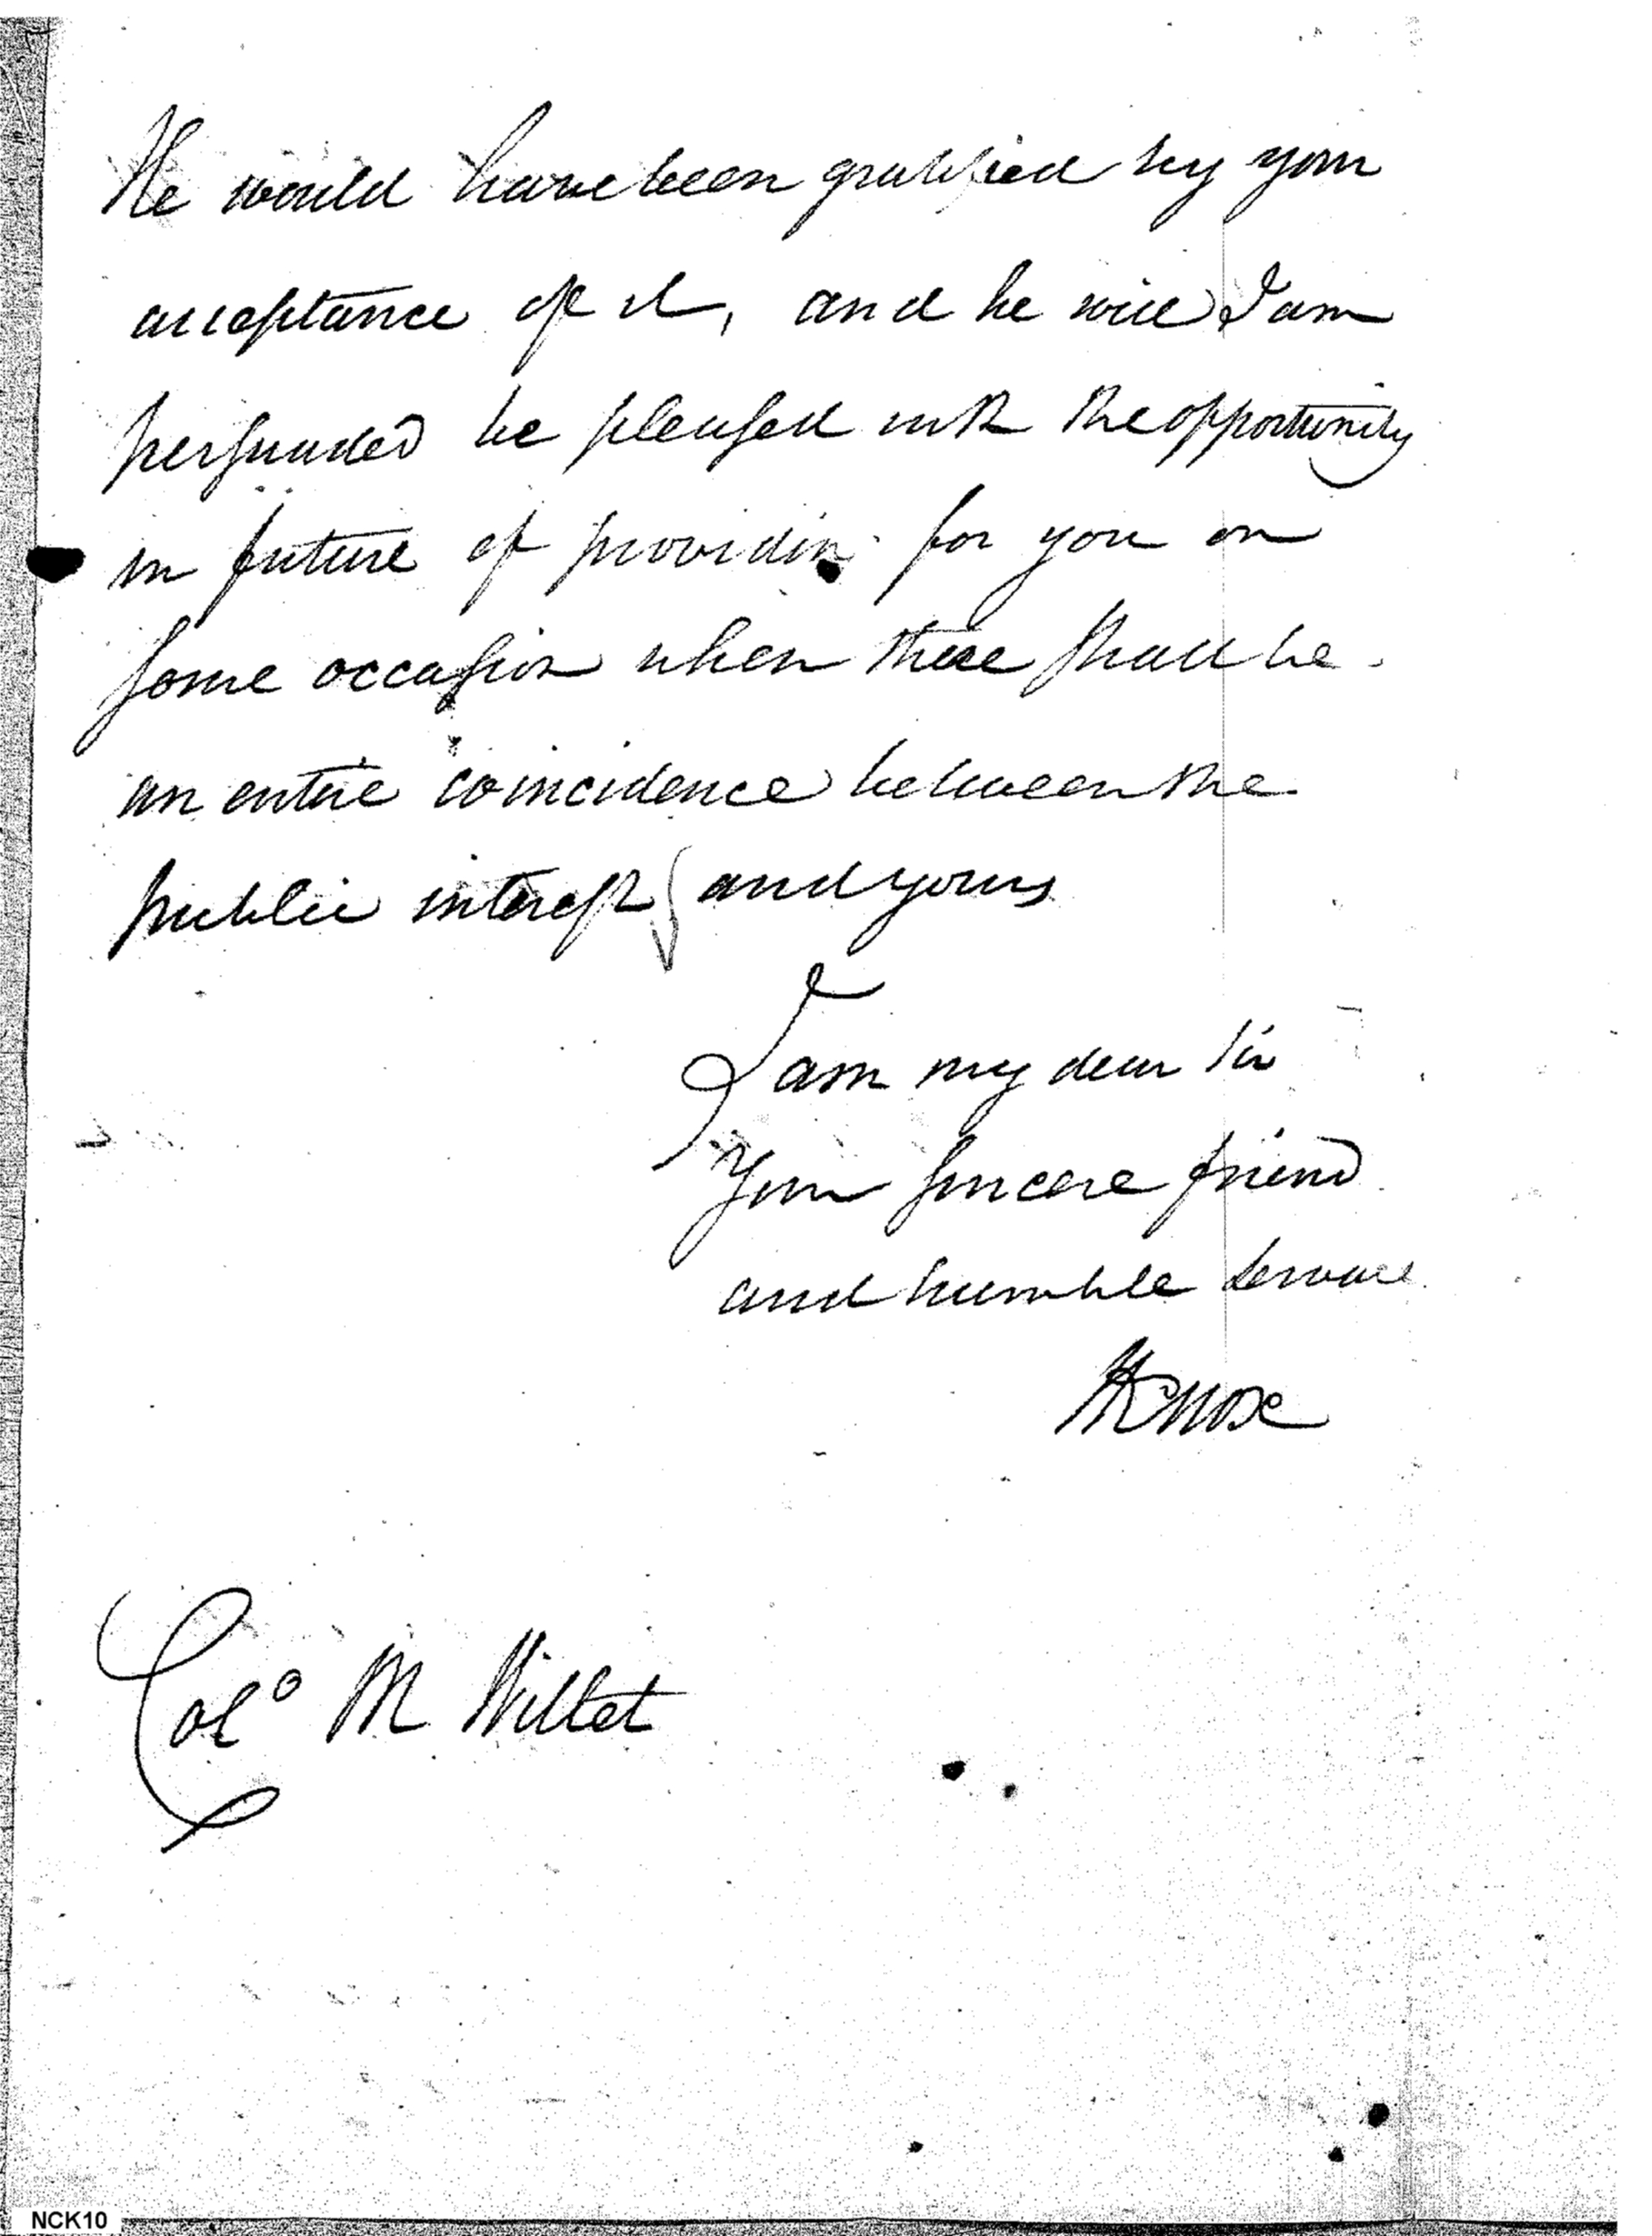 He would have been gratified by your
acceptance of it, and he will I am
persuaded be pleased with the opportunity
in future of providing for you on
some occasion when there shall be
an entire coincidence between the
public interest and yours
I am my dear Sir
Your sincere friend
and humble Servant
HKnox
Colo M Willet
NCK10